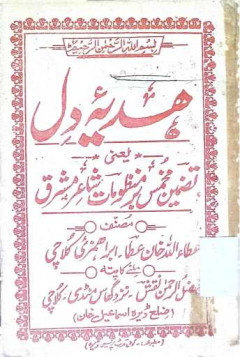 بسم اللہ الرحمن الرحیم
ہدیۂ دل
یعنی
تضمین مخمس بر منظومات شاعر مشرق
مصنف
عطاء اللہ خان عطا۔ ایڈوکیٹ گلاچی
ملنے کا پتہ
نزد گھاس منڈی۔ گلاچی
(ضلع ڈیرہ اسماعیل خان)